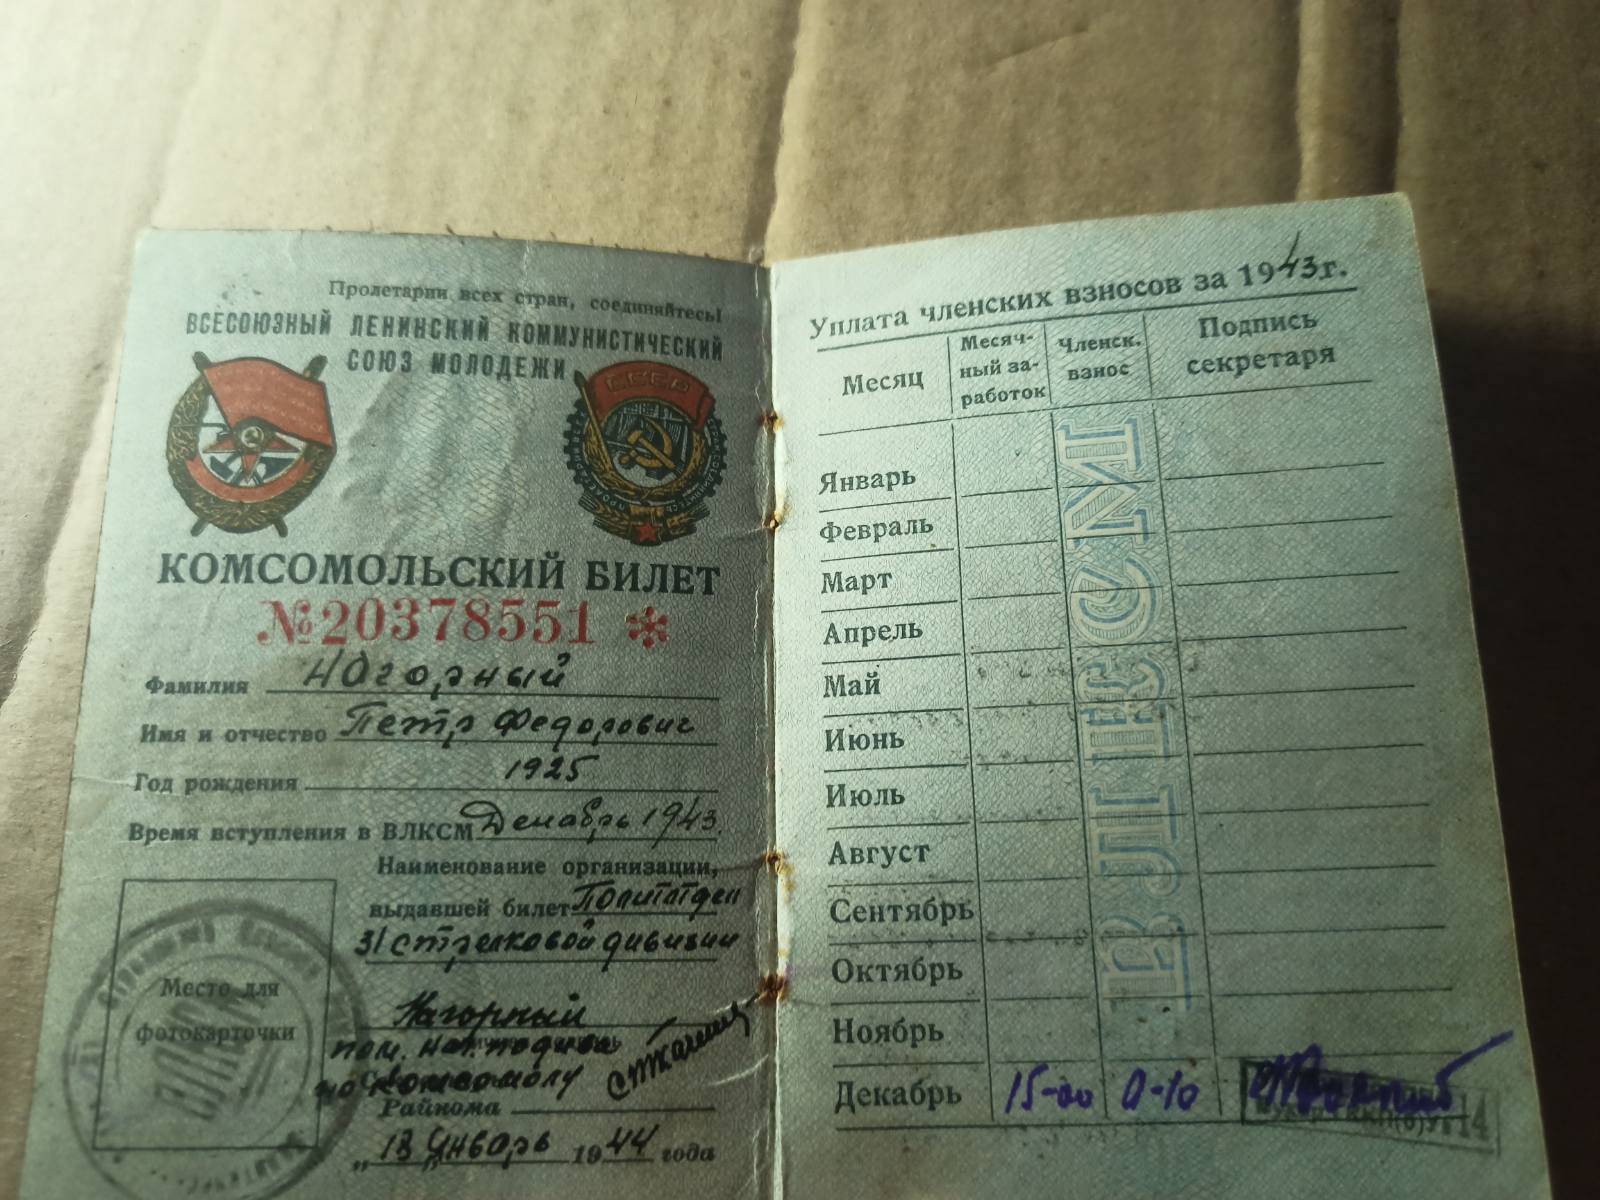 Пролетарии всех стран, соединяйтесь!
ВСЕСОЮЗНЫЙ ЛЕНИНСКИЙ КОММУНИСТИЧЕСКИЙ
СОЮЗ МОЛОДЕЖИ
СССР
КОМСОМОЛЬСКИЙ БИЛЕТ
№20378551 *
Фамилия Нагорный
Имя и отчество Петр Федорович
Год рождения 1925
Время вступления в ВЛКСМ Декабрь 1943.
Наименование организации,
выдавшей билет Политотдел
31 стрелковой дивизии
Место для
фотокарточки
ВЛКСМ
Нагорный
пом. нач. подива
по комсомолу
Райкома
"13" Январь 1944 года
Уплата членских взносов за 1943г.
Месяц
Месяч-
ный за-
работок
Членск.
взнос
Подпись
секретаря
ВЛКСМ
Январь
Февраль
Март
Апрель
Май
Июнь
Июль
Август
Сентябрь
Октябрь
Ноябрь
Декабрь 15-00 0-10
14